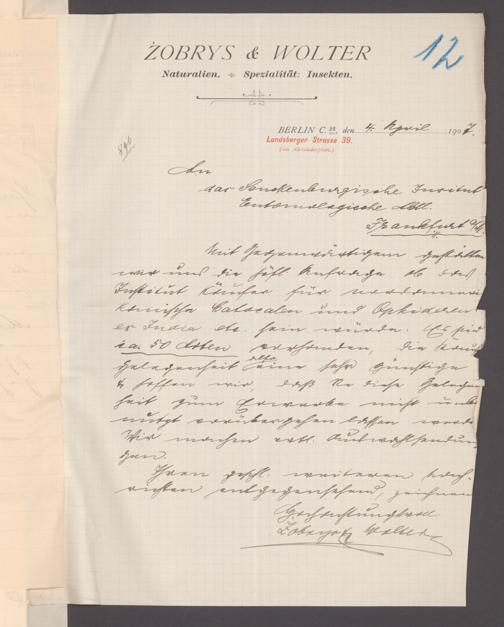 12
ŻOBRYS & WOLTER
Naturalien. Spezialität: Insekten.
BERLIN C. 25, den 4. April 1907.
Landsberger Strasse 39.
(am Alexanderplatz.)
An
das Senckenburgische Institut
Entomologische Abtl.
Frankfurt a/M.
Mit Gegenwärtigem gestatten
wir uns die höfl. Anfrage ob das
Institut Käufer für nordameri
kanische Catocalen und Ophideren
er India etc. sein würde. Es sind
ca. 50 Arten vorhanden, die
Gelegenheit also eine sehr günstige
& hoffen wir, daß Sie diese Gelegen
heit zum Erwerbe nicht unbe
nutzt vorübergehen lassen werden
Wir machen evtl. Auswahlsendun
gen.
Ihren gefl. weiteren Nach-
richten entgegensehend, zeichnen
Hochachtungsvoll
Zobrys & Wolter